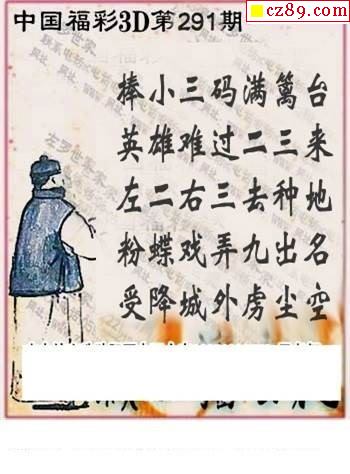 cz89.com
中国福彩3D第291期
棒小三码满篱台
英雄难过二三来
左二右三去种地
粉蝶戏弄九出名
受降城外虏尘空